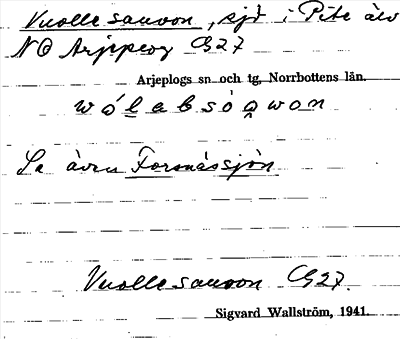 Vuollesauvon, sjö i Pite älv
NO Arjeplog G27
Arjeplogs sn och tg, Norrbottens län.
Se även Fornässjön
Vuollesauvon G27
Sigvard Wallström, 1941.